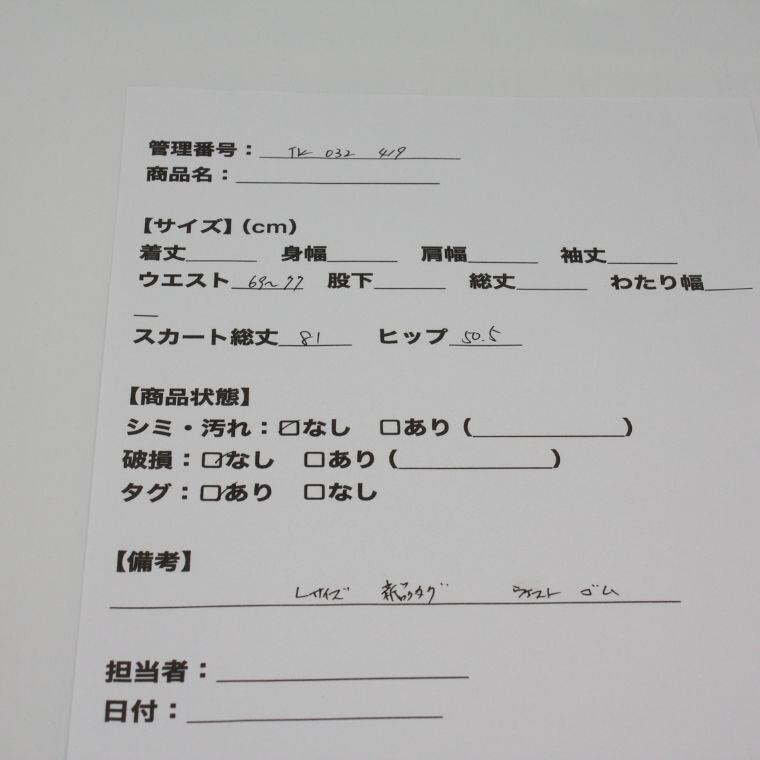 管理番号：TK 032 419
商品名：
【サイズ】（cm）
着丈 身幅 肩幅 袖丈
ウエスト 69~77 股下 総丈 わたり幅
スカート総丈 81 ヒップ 50.5
【商品状態】
シミ・汚れ：☑なし □あり（ ）
破損：☑なし □あり（ ）
タグ：☑あり □なし
【備考】
Lサイズ 新品タグ ウエスト ゴム
担当者：
日付：